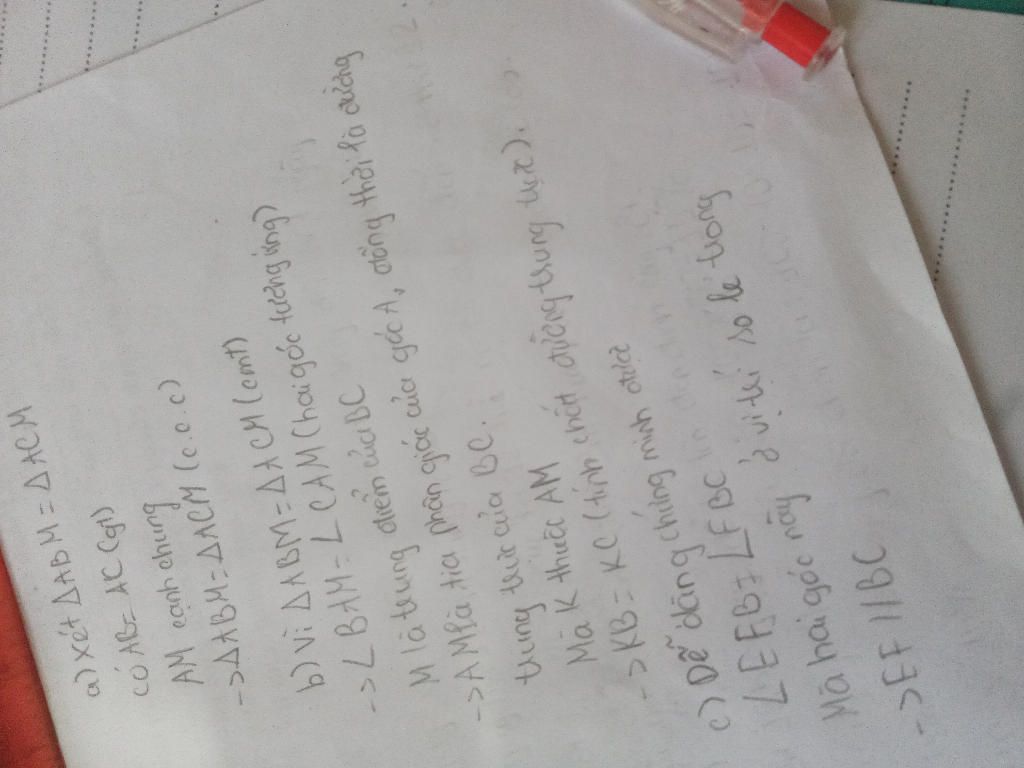 a) xét ΔABM = ΔACM
có AB = AC (gt)
AM cạnh chung
-> ΔABM = ΔACM (c.c.c)
b) Vì ΔABM = ΔACM (cmt)
-> ∠BAM = ∠CAM (hai góc tương ứng)
M là trung điểm của BC
-> AM là tia phân giác của góc A, đồng thời là đường
trung trực của BC.
Mà K thuộc AM
-> KB = KC (tính chất đường trung trực).
c) Dễ dàng chứng minh được
∠EFB = ∠FBC
Mà hai góc này ở vị trí so le trong
-> EF // BC